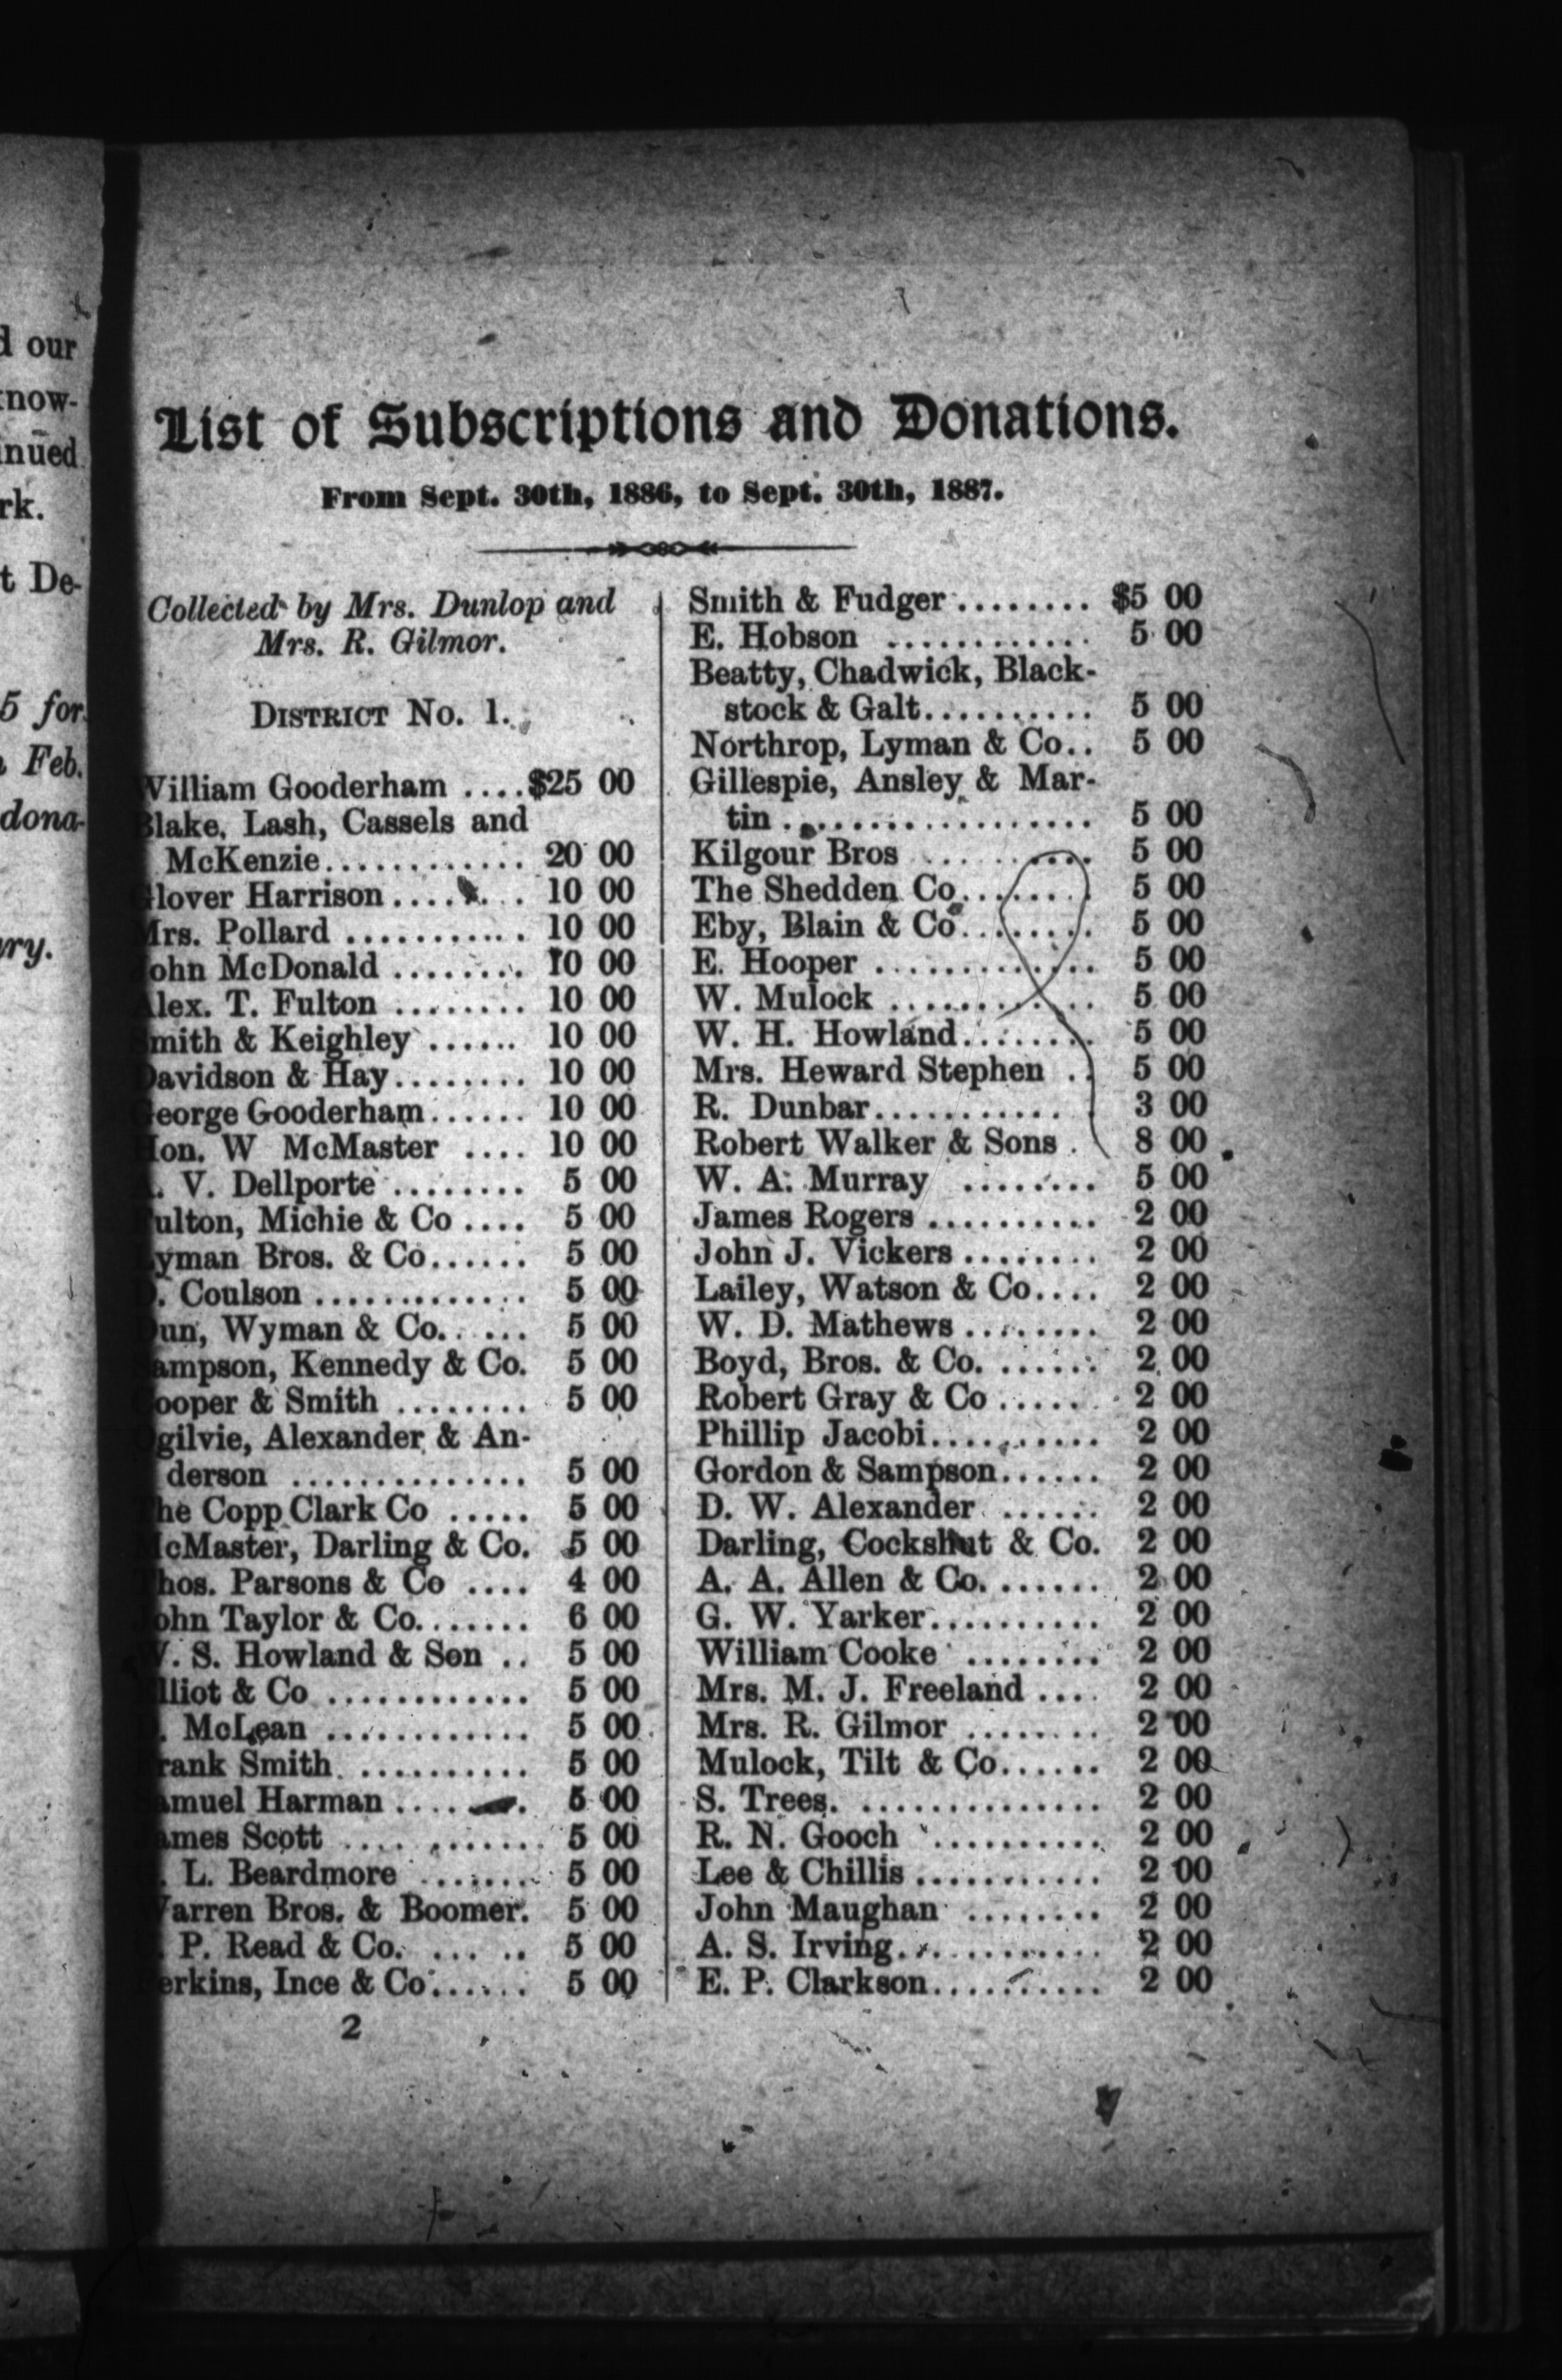 d our
know-
inued
rk.
t De-
5 for
Feb.
dona-
ry.
List of Subscriptions and Donations.
From Sept. 30th, 1886, to Sept. 30th, 1887.
Collected by Mrs. Dunlop and
Mrs. R. Gilmor.
DISTRICT No. 1.
William Gooderham ....$25 00
Blake, Lash, Cassels and
McKenzie............ 20 00
Glover Harrison........ 10 00
Mrs. Pollard ........... 10 00
John McDonald ........ 10 00
Alex. T. Fulton ........ 10 00
Smith & Keighley ...... 10 00
Davidson & Hay........ 10 00
George Gooderham...... 10 00
Hon. W McMaster .... 10 00
. V. Dellporte ........ 5 00
Fulton, Michie & Co .... 5 00
Lyman Bros. & Co...... 5 00
D. Coulson ............. 5 00
Dun, Wyman & Co. . ... 5 00
Sampson, Kennedy & Co. 5 00
Cooper & Smith ........ 5 00
Ogilvie, Alexander & An-
derson .............. 5 00
The Copp Clark Co ..... 5 00
McMaster, Darling & Co. 5 00
Thos. Parsons & Co .... 4 00
John Taylor & Co....... 6 00
W. S. Howland & Son .. 5 00
Elliot & Co ............ 5 00
. McLean ............ 5 00
Frank Smith. .......... 5 00
Samuel Harman ........ 5 00
James Scott .... ....... 5 00
. L. Beardmore ....... 5 00
Warren Bros. & Boomer. 5 00
. P. Read & Co. ... .. 5 00
Perkins, Ince & Co...... 5 00
2
Smith & Fudger ........ $5 00
E. Hobson ............ 5 00
Beatty, Chadwick, Black-
stock & Galt.......... 5 00
Northrop, Lyman & Co.. 5 00
Gillespie, Ansley & Mar-
tin .................. 5 00
Kilgour Bros .......... 5 00
The Shedden Co........ 5 00
Eby, Blain & Co........ 5 00
E. Hooper ............. 5 00
W. Mulock ............ 5 00
W. H. Howland........ 5 00
Mrs. Heward Stephen .. 5 00
R. Dunbar............ 3 00
Robert Walker & Sons . 8 00
W. A. Murray ........ 5 00
James Rogers .......... 2 00
John J. Vickers ........ 2 00
Lailey, Watson & Co.... 2 00
W. D. Mathews ........ 2 00
Boyd, Bros. & Co. ...... 2 00
Robert Gray & Co ..... 2 00
Phillip Jacobi.......... 2 00
Gordon & Sampson...... 2 00
D. W. Alexander ...... 2 00
Darling, Cockshut & Co. 2 00
A. A. Allen & Co. ...... 2 00
G. W. Yarker.......... 2 00
William Cooke ........ 2 00
Mrs. M. J. Freeland .... 2 00
Mrs. R. Gilmor ........ 2 00
Mulock, Tilt & Co...... 2 00
S. Trees. .............. 2 00
R. N. Gooch .......... 2 00
Lee & Chillis ........... 2 00
John Maughan ........ 2 00
A. S. Irving............ 2 00
E. P. Clarkson.......... 2 00